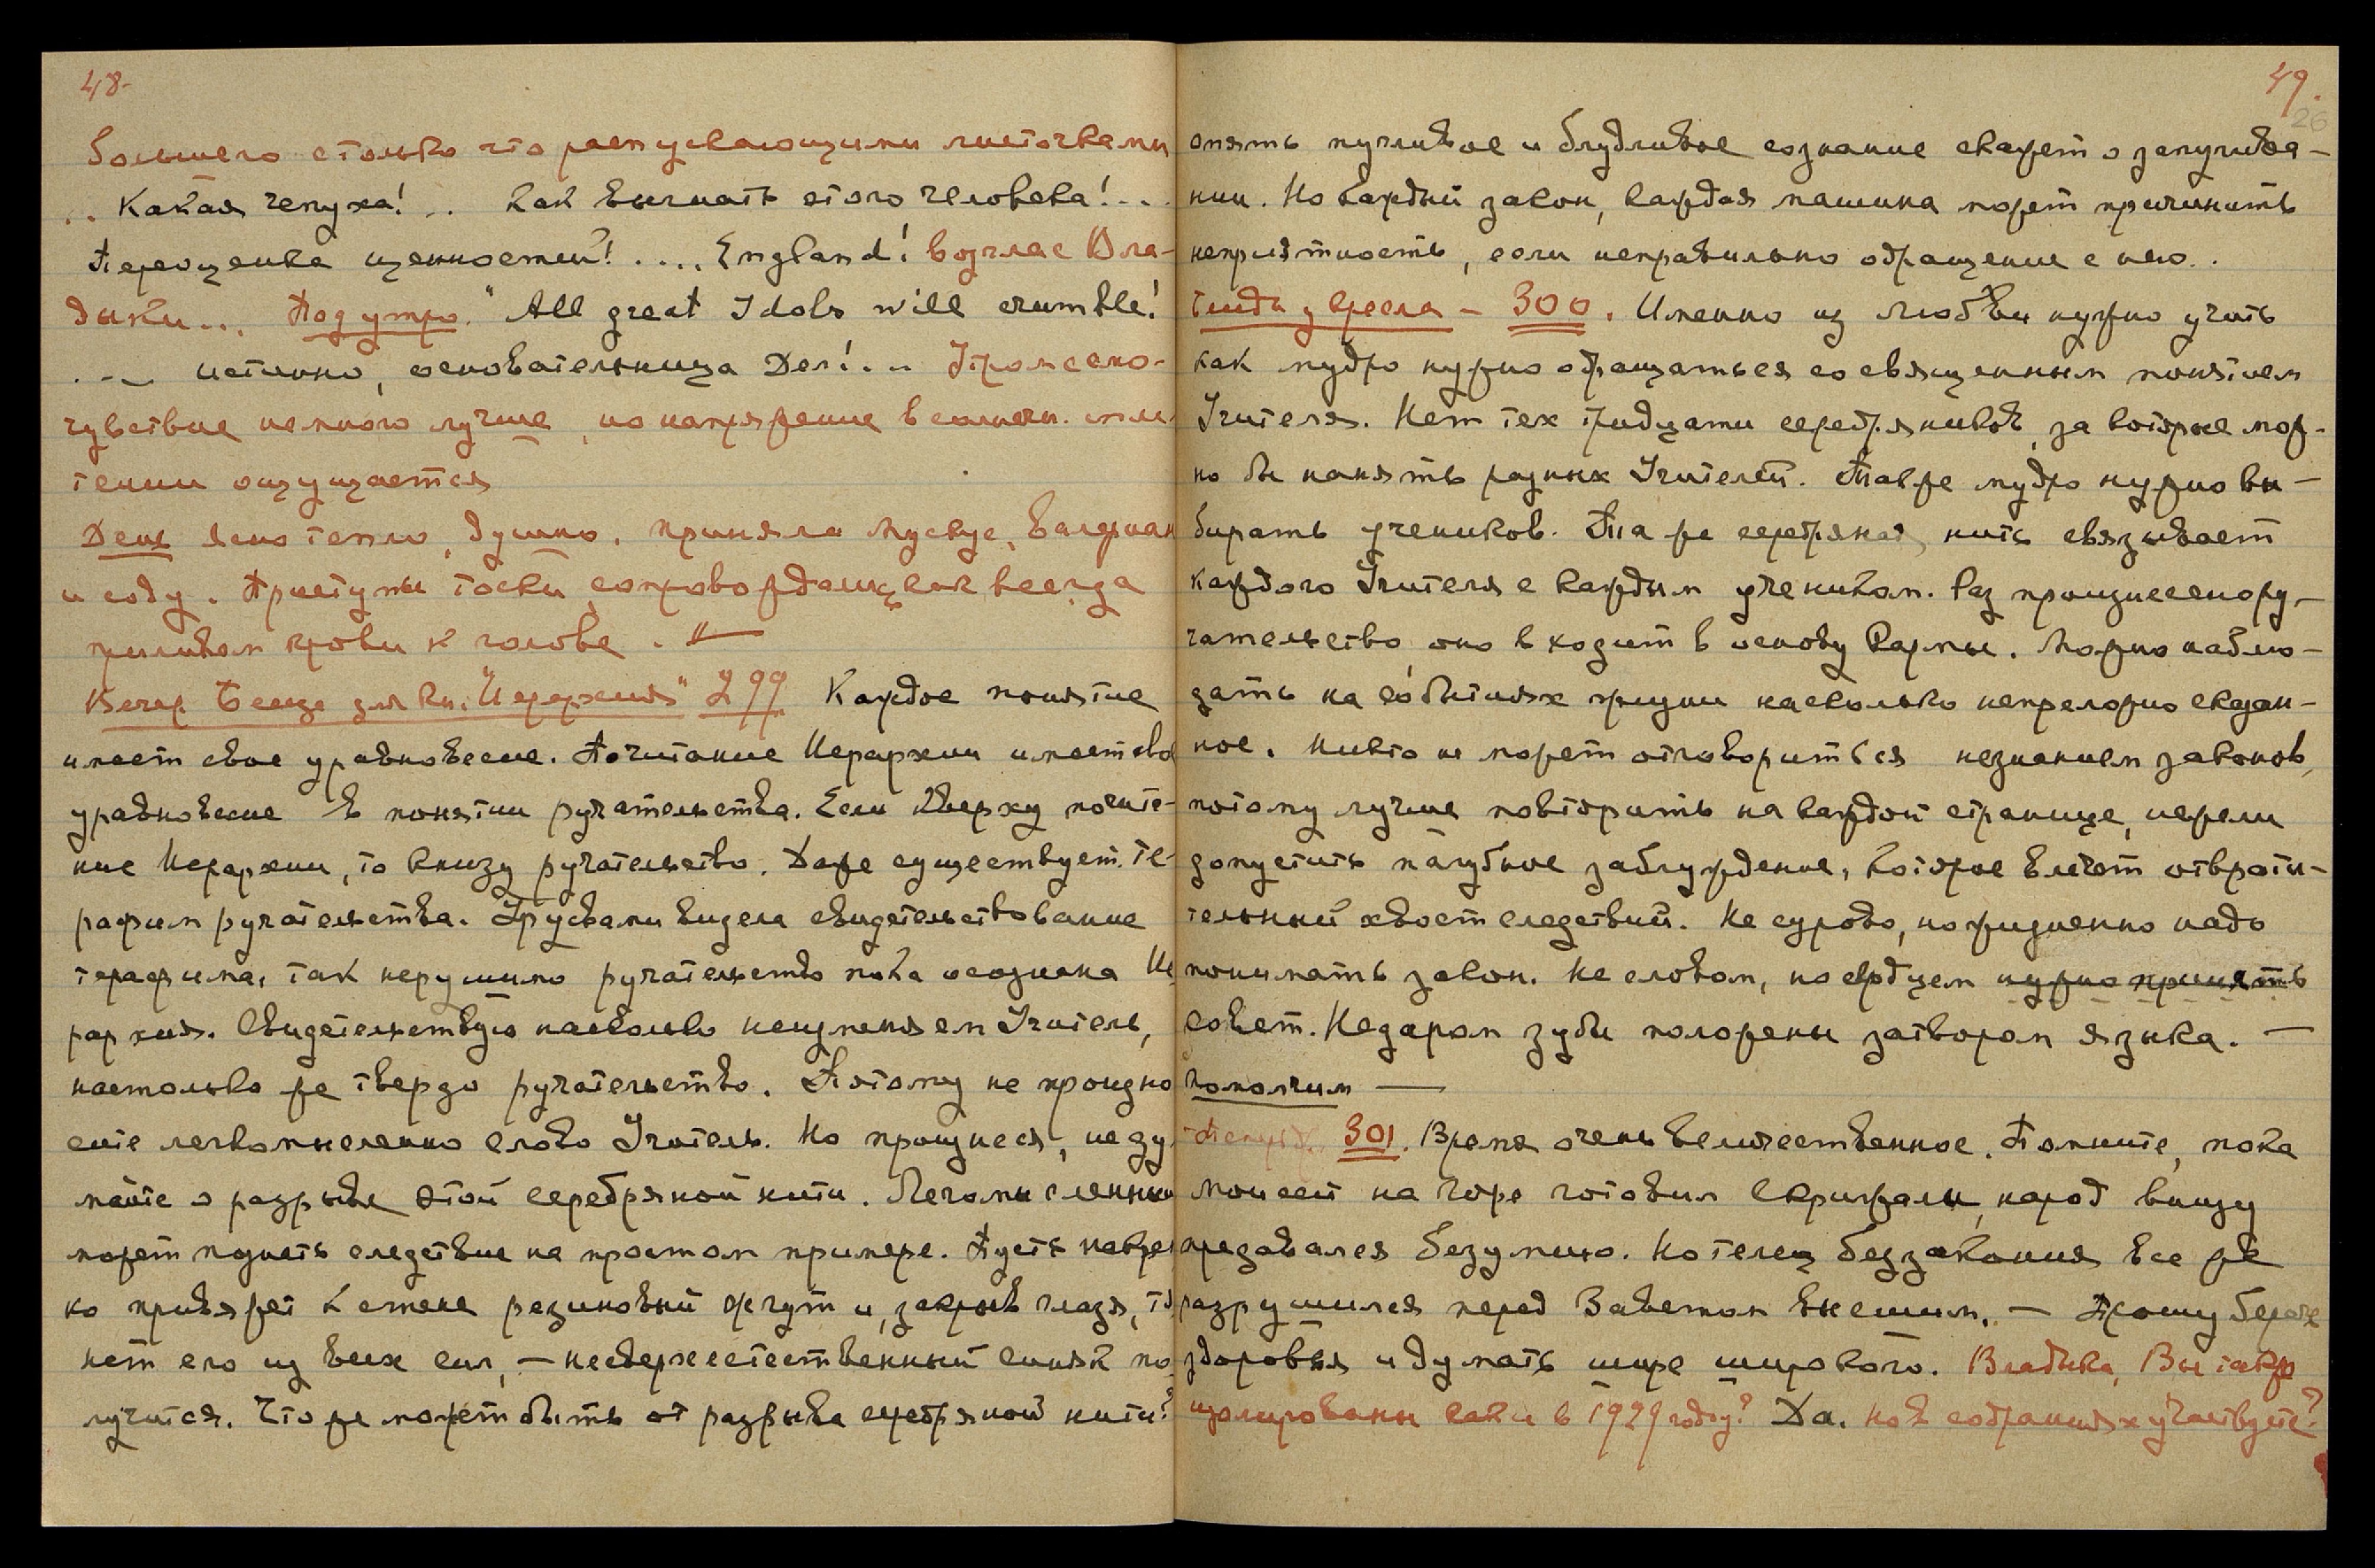 48-
большего с только что распускающими листочками
.. Какая чепуха! .. Как выгнать этого человека! ...
Переоценка ценностей! .... England! возглас Вла-
дыки... Под утро. "All great Idols will crumble!
... истинно, основательница Дел! ... Утром само-
чувствие немного лучше, но напряжение в солнечн. спле
тении ощущается
День ясно тепло, душно. Приняла мускус, валериан
и соду. Приступы тоски сопровождающ. как всегда
приливом крови к голове. "—
Вечер Беседа для кн. "Иерархия" 299 Каждое понятие
имеет свое уравновесие. Почитание Иерархии имеет сво
уравновесие в понятии ручательства. Если кверху почите-
ние Иерархии, то книзу ручательство. Даже существует те-
рафим ручательства. Урусвами видела свидетельствование
терафима, так нерушимо ручательство пока осознана Ие
рархия. Свидетельствую насколько неизменяем Учитель,
настолько же твердо ручательство. Потому не произно
сите легкомысленно слово Учитель. Но произнеся, не ду-
майте о разрыве этой серебряной нити. Легомысленный
может познать следствие на простом примере. Пусть накре
ко привяжет к стене резиновый жгут и, закрыв глаза, тя
нет его из всех сил, — несверхестественный синяк по-
лучится. Что же может быть от разрыва серебряной нити?
49.
26
опять пугливое и блудливое сознание скажет о запугива-
нии. Но каждый закон, каждая машина может причинить
неприятность, если неправильно обращение с нею..
Сидя у кресла - 300. Именно из любви нужно учить
как мудро нужно обращаться со священным понятием
Учителя. Нет тех тридцати серебряников, за которые мож-
но бы нанять разных Учителей. Также мудро нужно вы-
бирать учеников. Та же серебряная нить связывает
каждого Учителя с каждым учеником. Раз произнесено ру-
чательство, оно входит в основу Кармы. Можно наблю-
дать на событиях жизни насколько непреложно сказан-
ное. Никто не может отговориться незнанием законов,
потому лучше повторить на каждой странице, нежели
допустить пагубное заблуждение, которое влечет отврати-
тельный хвост следствий. Не сурово, но жизненно надо
понимать закон. Не словом, но сердцем нужно принять
совет. Недаром зубы положены затвором языка. —
помолчим —
301. Время очень величественное. Помните, пока
Моисей на горе готовил скрижали, народ внизу
предавался безумию. Но телец беззакония все же
разрушился перед Заветом высшим. — Прошу беречь
здоровья и думать шире широкого. Владыка, Вы также
изолированы как и в 1929 году? Да. Но в собраниях участвуете?